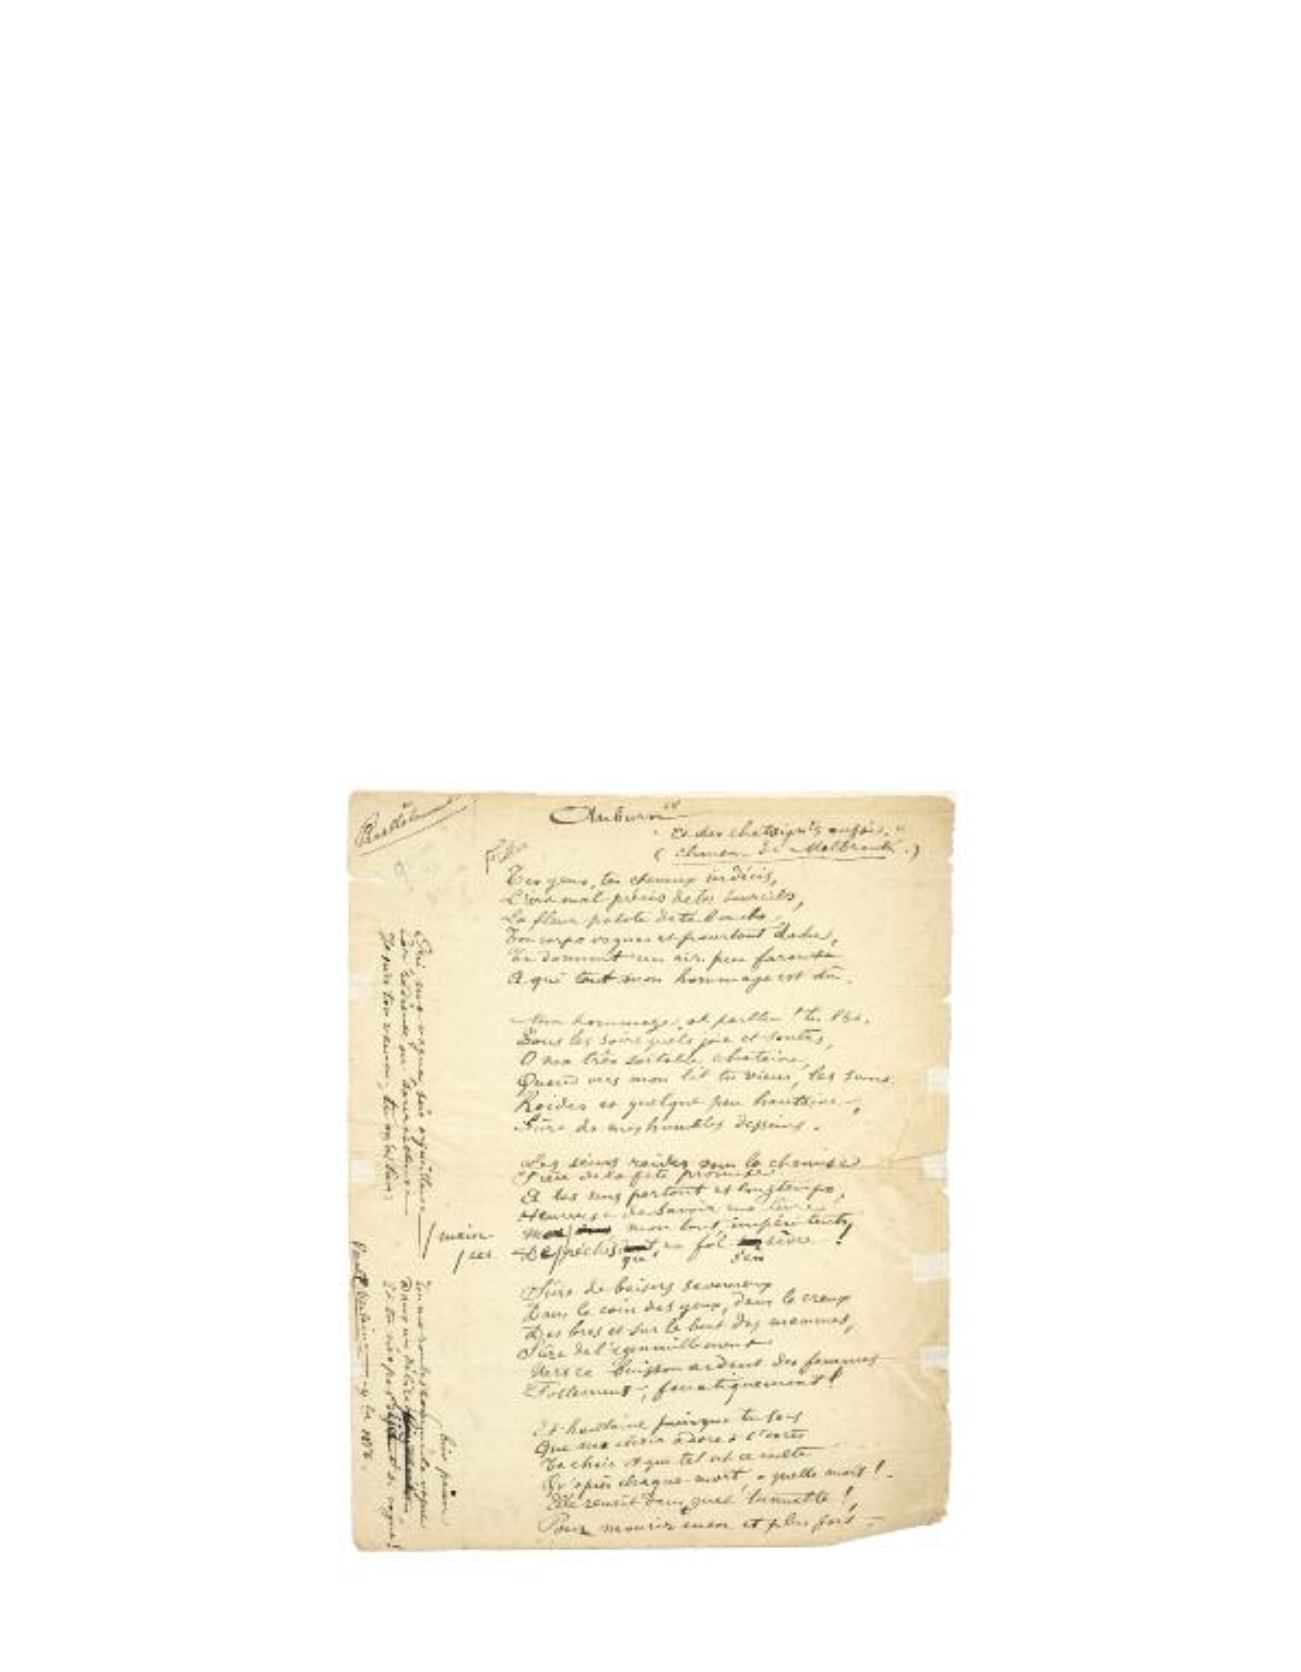 Auburn
"Et des châtaignes aussi."
(Chanson de Malbrouk.)
Tes yeux, tes cheveux indécis,
L'arc mal précis de tes sourcils,
La fleur palote de ta bouche,
Ton corps vague et pourtant dodu,
Te donnent un air peu farouche
A qui tout mon hommage est dû.
Mon hommage, eh parbleu ! tu l'as.
Tous les soirs quels joie et soulas,
O ma très sortable châtaine,
Quand vers mon lit tu viens, les seins
Roides et quelque peu hautaine,
Sûre de mes humbles desseins.
Les seins roides sous la chemise
Fière de la fête promise
A tes sens partout et longtemps,
Heureuse de savoir ma lèvre
Ma / main mon tout impénitents
De / ces péchés qu'un fol s'en sèvre !
Sûre de baisers savoureux
Dans le coin des yeux, dans le creux
Des bras et sur le bout des mammes,
Sûre de l'agenouillement
Vers ce buisson ardent des femmes
Follement, fanatiquement !
Et hautaine puisque tu sais
Que ma chair adore à l'excès
Ta chair et que tel est ce culte
Qu'après chaque mort, – quelle mort ! –
Elle renaît dans quel tumulte !
Pour mourir encor et plus fort –
Oui ma vague sois orgueilleuse
Car radieuse ou sourcilleuse
Je suis ton vaincu, tu m'as tien :
Tu me roules comme la vague
Dans un délice bien païen,
Et tu n'es pas déjà si vague !
Paul Verlaine